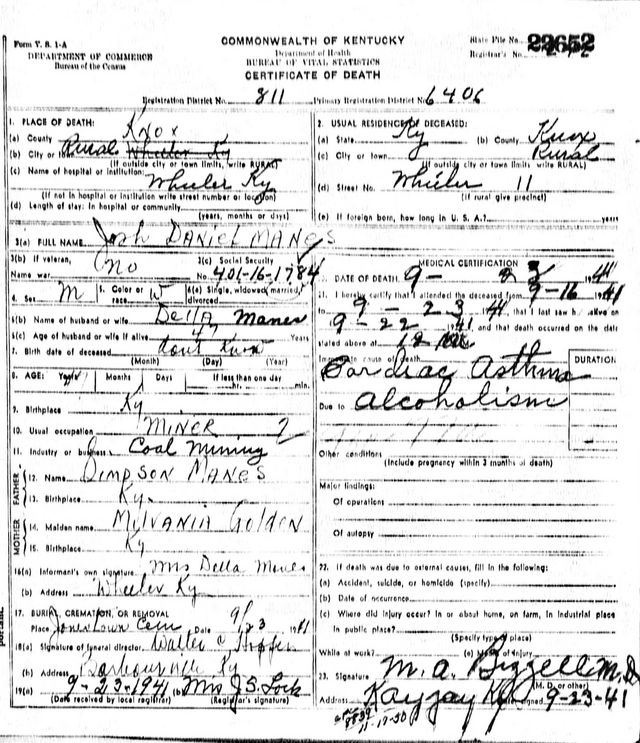 Form V. S. 1-A
DEPARTMENT OF COMMERCE
Bureau of the Census
COMMONWEALTH OF KENTUCKY
Department of Health
BUREAU OF VITAL STATISTICS
CERTIFICATE OF DEATH
State File No. 22652
Registrar's No.
Registration District No. 811 Primary Registration District No. 6406
1. PLACE OF DEATH:
(a) County Knox
(b) City or town Rural Wheeler Ky
(If outside city or town limits, write RURAL)
(c) Name of hospital or institution:
Wheeler Ky
(If not in hospital or institution write street number or location)
(d) Length of stay: In hospital or community
(years, months or days)
2. USUAL RESIDENCE OF DECEASED:
(a) State Ky (b) County Knox
(c) City or town Rural
(If outside city or town limits, write RURAL)
(d) Street No. Wheeler 11
(If rural give precinct)
(e) If foreign born, how long in U. S. A.? years
3(a) FULL NAME Josh DANIEL MANES
3(b) If veteran, Name war no
3(c) Social Security No. 401-16-1784
4. Sex M 5. Color or race W 6(a) Single, widowed, married, divorced
6(b) Name of husband or wife Della Manes
6(c) Age of husband or wife if alive 47 Years
7. Birth date of deceased dont know
(Month) (Day) (Year)
8. AGE: Years Months Days If less than one day
hr. min.
9. Birthplace Ky
10. Usual occupation MINER
11. Industry or business Coal Mining
FATHER
12. Name SIMPSON MANES
13. Birthplace Ky.
MOTHER
14. Maiden name MYLVANIA GOLDEN
15. Birthplace Ky
16(a) Informant's own signature Mrs Della Manes
(b) Address Wheeler Ky
17. BURIAL, CREMATION, OR REMOVAL
Place Jonestown Cem Date 9/23 1941
18(a) Signature of funeral director Walter C Hopper
(b) Address Barbourville Ky
19(a) 9-23-1941 (b) Mrs J.S. Lock
(Date received by local registrar) (Registrar's signature)
MEDICAL CERTIFICATION
20. DATE OF DEATH 9- 23 1941
21. I hereby certify that I attended the deceased from 9-16 1941
to 9-23 1941, that I last saw h alive on
9-22 1941 and that death occurred on the date
stated above at 12 M
Immediate cause of death DURATION
Cardiac Asthma
Due to alcoholism
Other conditions
(Include pregnancy within 3 months of death)
Major findings:
Of operations
Of autopsy
22. If death was due to external causes, fill in the following:
(a) Accident, suicide, or homicide (specify)
(b) Date of occurrence
(c) Where did injury occur? In or about home, on farm, in industrial place
in public place?
(Specify type of place)
While at work? (e) Means of injury
23. Signature M. A. Bizzelle M.D.
(M. D. or other)
Address Kayjay Ky Date signed 9-23-41
11-17-30